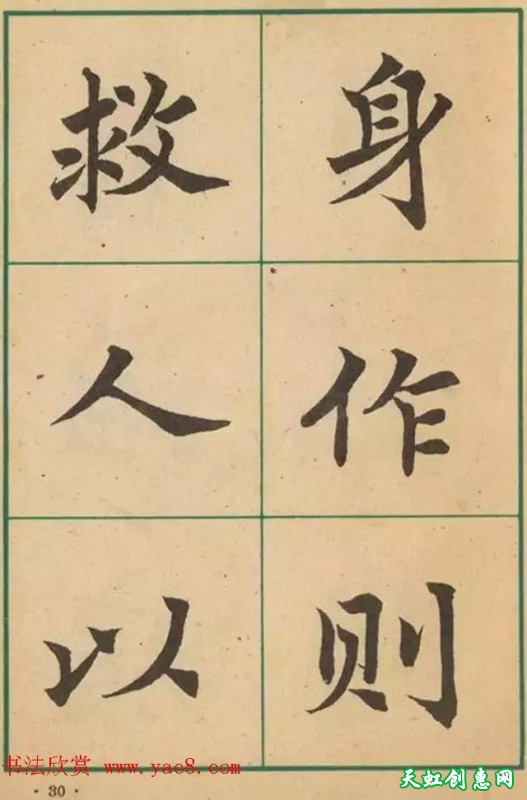 身作则
救人以
书法欣赏 http://www.yac8.com
·30·
天虹创惠网